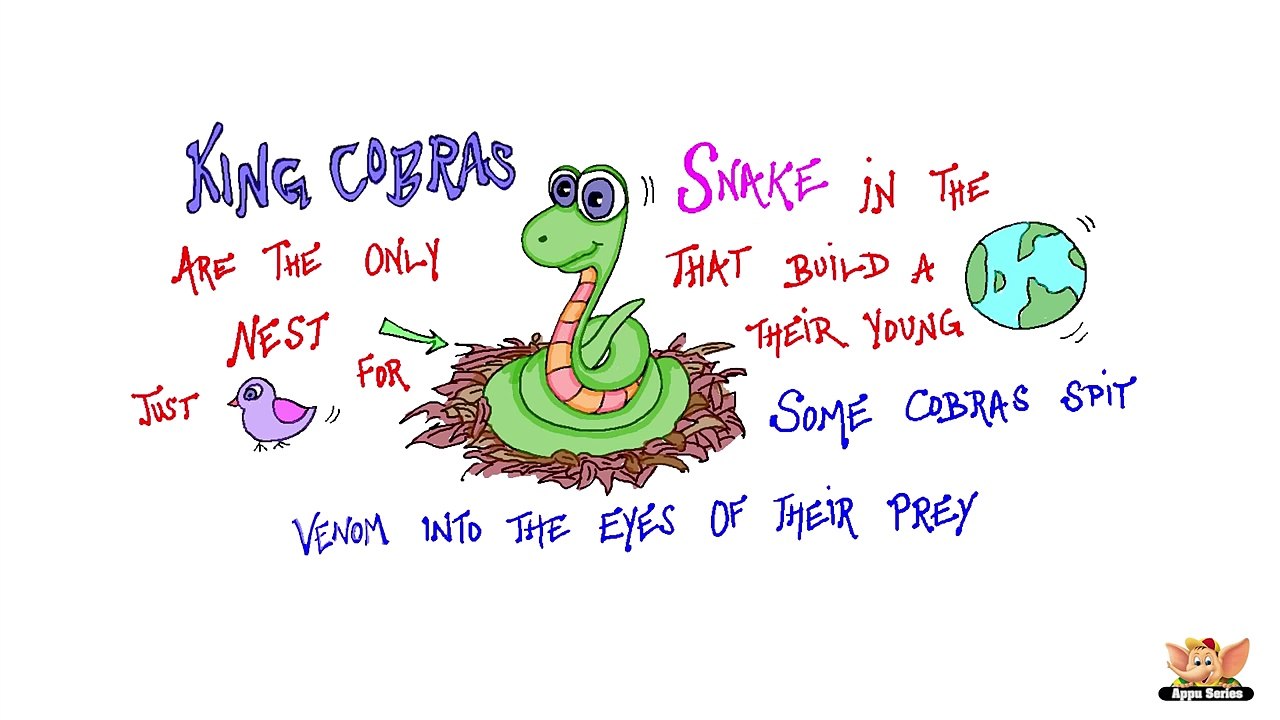 KING COBRAS
ARE THE ONLY
SNAKE IN THE
THAT BUILD A
NEST
FOR
THEIR YOUNG
JUST
SOME COBRAS SPIT
VENOM INTO THE EYES OF THEIR PREY
Appu Series